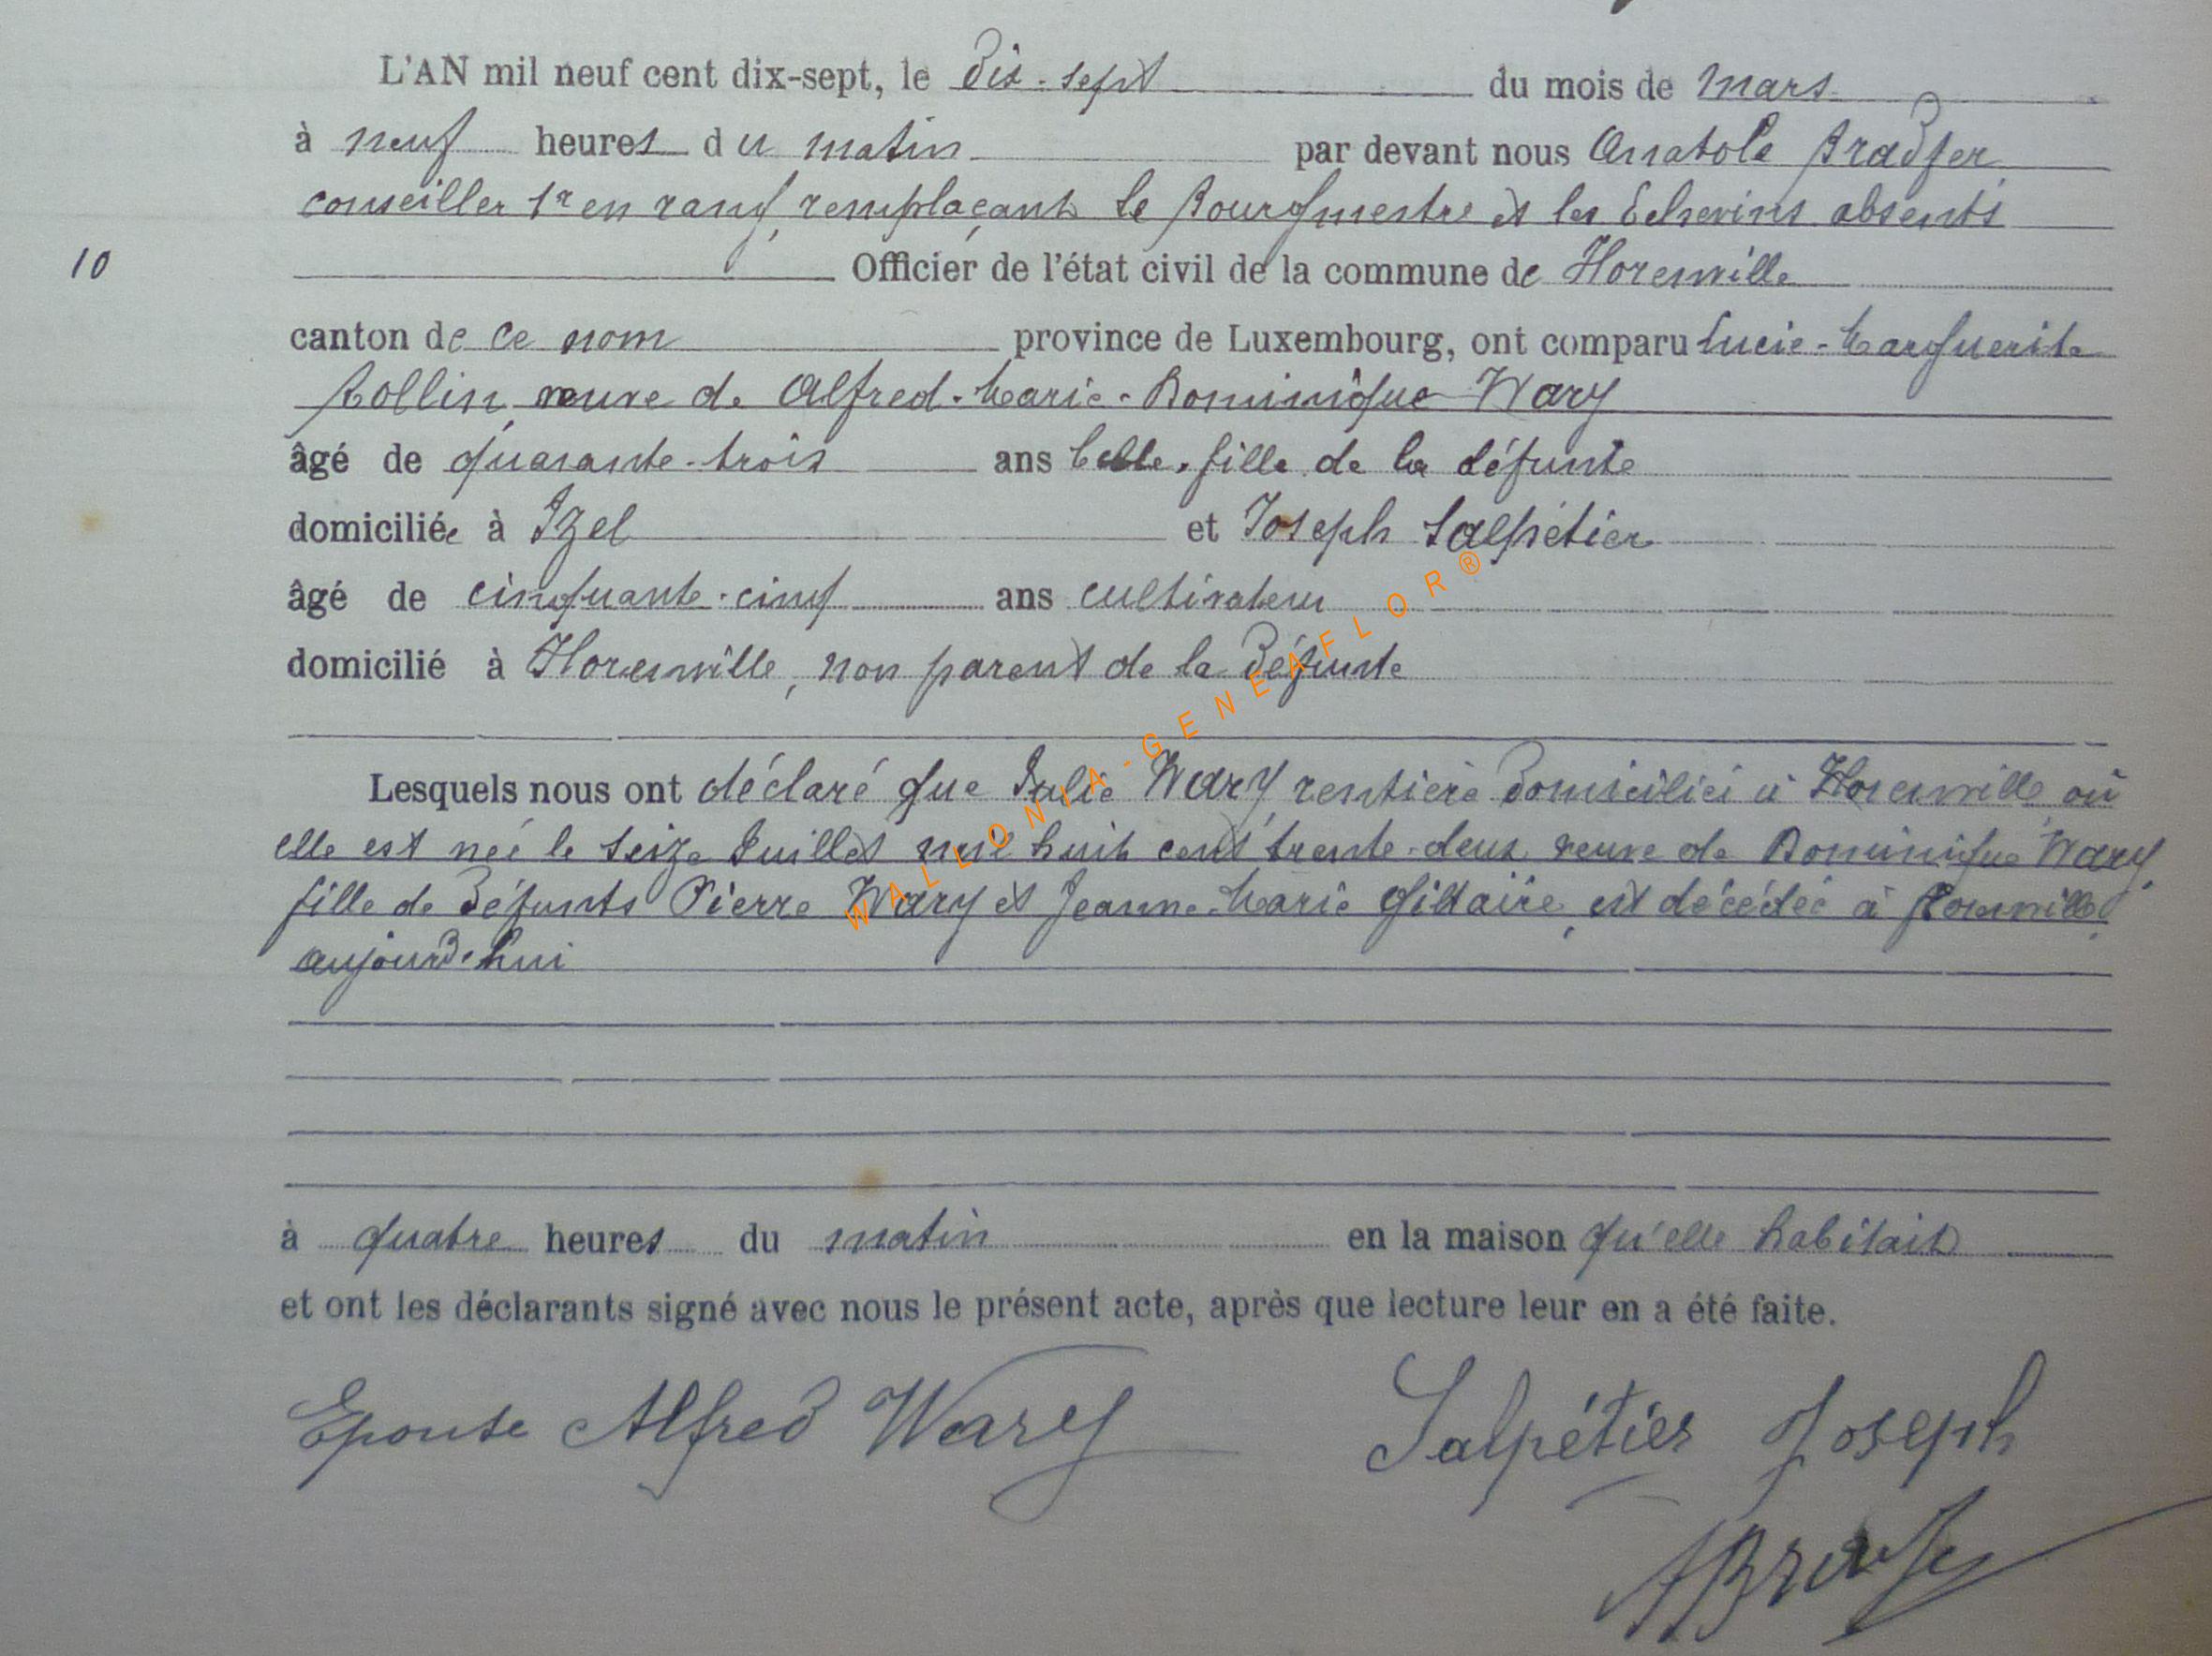 L'AN mil neuf cent dix-sept, le dix-sept du mois de mars
à neuf heures du matin par devant nous Anatole Bradfer
conseiller 1r en rang, remplaçant le Bourgmestre et les Echevins absents
10
Officier de l'état civil de la commune de Florenville
canton de ce nom province de Luxembourg, ont comparu Lucie-Marguerite
Rollin, veuve de Alfred-Marie-Dominique Wary
âgé de quarante-trois ans belle-fille de la défunte
domiciliée à Izel et Joseph Salpétier
âgé de cinquante-cinq ans cultivateur
domicilié à Florenville, non parent de la défunte
Lesquels nous ont déclaré que Julie Wary rentière domiciliée à Florenville où
elle est née le seize Juillet mil huit cent trente-deux veuve de Dominique Wary,
fille de défunts Pierre Wary et Jeanne-Marie Giltaire, est décédée à Florenville,
aujourd'hui
à quatre heures du matin en la maison qu'elle habitait
et ont les déclarants signé avec nous le présent acte, après que lecture leur en a été faite.
Epouse Alfred Wary Salpétier Joseph
ABradfer
WALLONIA-GENEAFLOR®